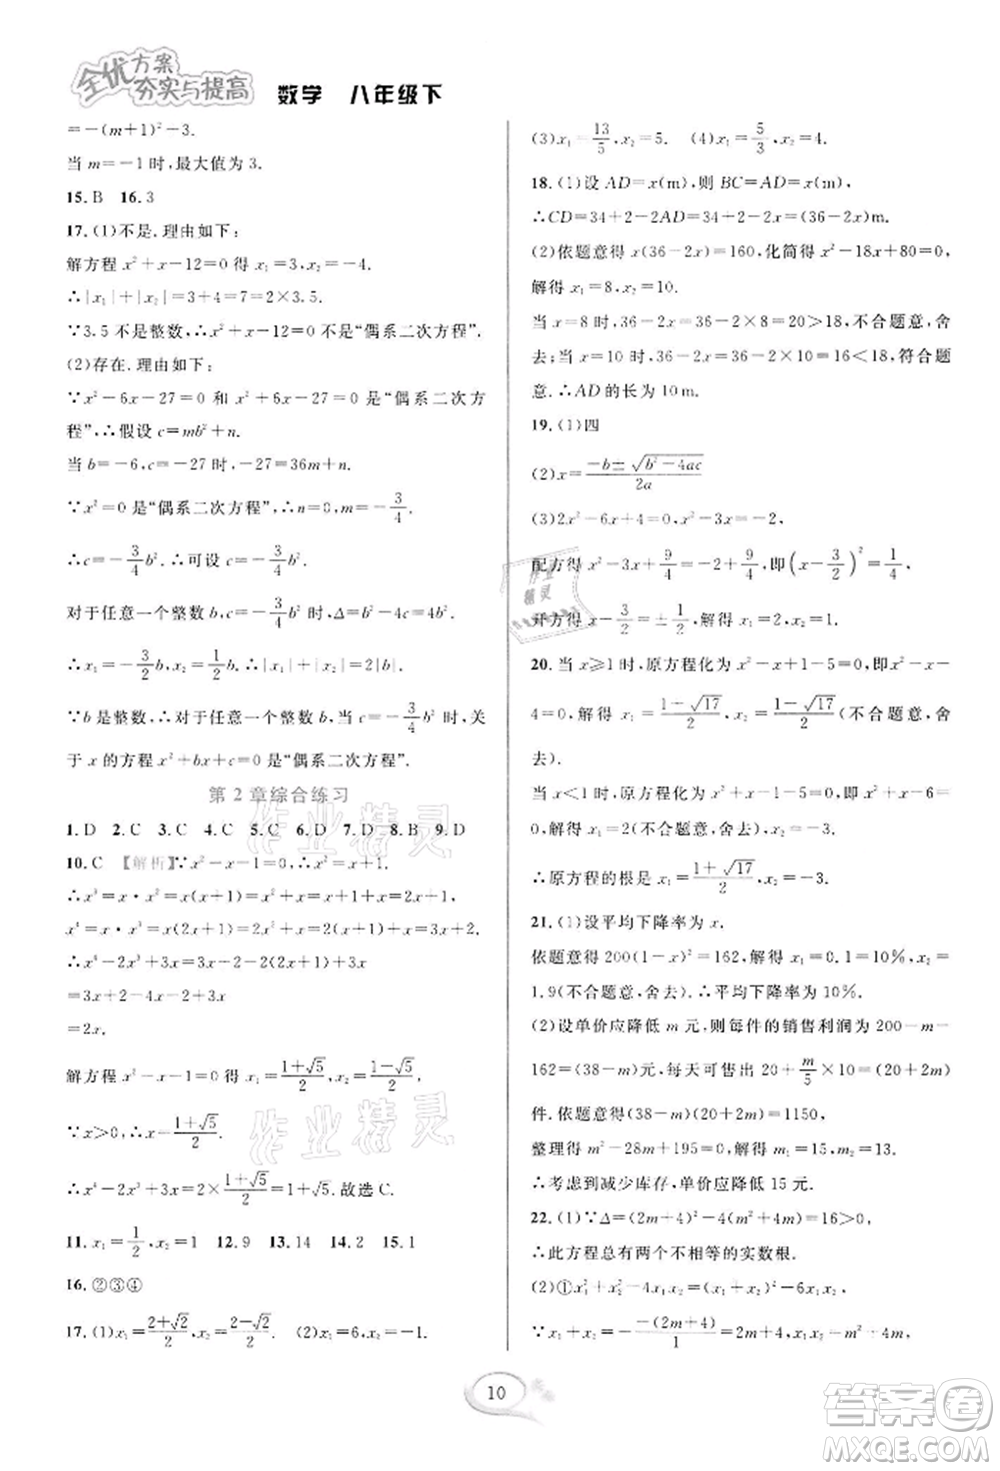 全优方案
夯实与提高 数学 八年级下
=-(m+1)²-3.
当 m=-1 时,最大值为 3.
15.B 16.3
17.(1)不是.理由如下:
解方程 x²+x-12=0 得 x₁=3,x₂=-4.
∴|x₁|+|x₂|=3+4=7=2×3.5.
∵3.5 不是整数,∴x²+x-12=0 不是“偶系二次方程”.
(2)存在.理由如下:
∵x²-6x-27=0 和 x²+6x-27=0 是“偶系二次方
程”,∴假设 c=mb²+n.
当 b=-6,c=-27 时,-27=36m+n.
∵x²=0 是“偶系二次方程”,∴n=0,m=-3/4.
∴c=-3/4b².∴可设 c=-3/4b².
对于任意一个整数 b,c=-3/4b² 时,Δ=b²-4c=4b².
∴x₁=-3/2b,x₂=1/2b.∴|x₁|+|x₂|=2|b|.
∵b 是整数,∴对于任意一个整数 b,当 c=-3/4b² 时,关
于 x 的方程 x²+bx+c=0 是“偶系二次方程”.
第 2 章综合练习
1.D 2.C 3.C 4.C 5.C 6.D 7.D 8.B 9.D
10.C 【解析】∵x²-x-1=0,∴x²=x+1.
∴x³=x·x²=x(x+1)=x²+x=x+1+x=2x+1,
x⁴=x·x³=x(2x+1)=2x²+x=2x+2+x=3x+2.
∴x⁴-2x³+3x=3x+2-2(2x+1)+3x
=3x+2-4x-2+3x
=2x.
解方程 x²-x-1=0 得 x₁=(1+√5)/2,x₂=(1-√5)/2.
∵x>0,∴x=(1+√5)/2.
∴x⁴-2x³+3x=2×(1+√5)/2=1+√5.故选 C.
11.x₁=1/2,x₂=-1 12.9 13.14 14.2 15.1
16.②③④
17.(1)x₁=(2+√2)/2,x₂=(2-√2)/2. (2)x₁=6,x₂=-1.
(3)x₁=13/5,x₂=5. (4)x₁=5/3,x₂=4.
18.(1)设 AD=x(m),则 BC=AD=x(m),
∴CD=34+2-2AD=34+2-2x=(36-2x)m.
(2)依题意得 x(36-2x)=160,化简得 x²-18x+80=0,
解得 x₁=8,x₂=10.
当 x=8 时,36-2x=36-2×8=20>18,不合题意,舍
去;当 x=10 时,36-2x=36-2×10=16<18,符合题
意.∴AD 的长为 10 m.
19.(1)四
(2)x=(-b±√(b²-4ac))/2a
(3)2x²-6x+4=0,x²-3x=-2,
配方得 x²-3x+9/4=9/4-2,即(x-3/2)²=1/4,
开方得 x-3/2=±1/2,解得 x₁=2,x₂=1.
20.当 x≥1 时,原方程化为 x²-x+1-5=0,即 x²-x-
4=0,解得 x₁=(1+√17)/2,x₂=(1-√17)/2(不合题意,舍
去).
当 x<1 时,原方程化为 x²+x-1-5=0,即 x²+x-6=0,
解得 x₁=2(不合题意,舍去),x₂=-3.
∴原方程的根是 x₁=(1+√17)/2,x₂=-3.
21.(1)设平均下降率为 x.
依题意得 200(1-x)²=162,解得 x₁=0.1=10%,x₂=
1.9(不合题意,舍去).∴平均下降率为 10%.
(2)设单价应降低 m 元,则每件的销售利润为 200-m-
162=(38-m)元,每天可售出 20+m/5×10=(20+2m)
件.依题意得(38-m)(20+2m)=1150,
整理得 m²-28m+195=0,解得 m₁=15,m₂=13.
∴考虑到减少库存,单价应降低 15 元.
22.(1)∵Δ=(2m+4)²-4(m²+4m)=16>0,
∴此方程总有两个不相等的实数根.
(2)①x₁²+x₂²-4x₁x₂=(x₁+x₂)²-6x₁x₂,
∵x₁+x₂=-(-(2m+4))/1=2m+4,x₁x₂=m²+4m,
10
作业精灵
作业精灵
作业精灵
答案圈
MXQE.COM